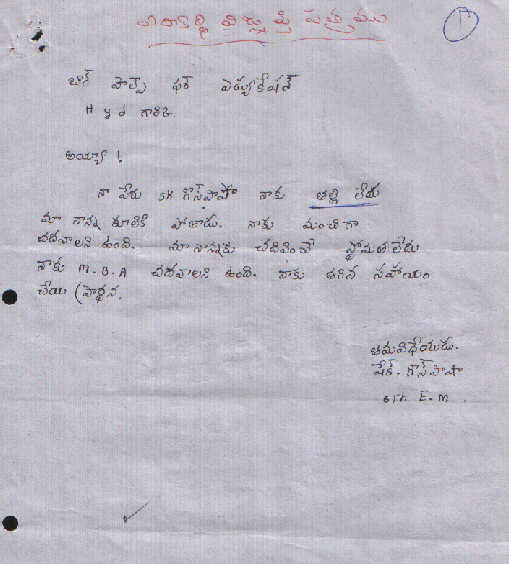 విద్యార్థి విజ్ఞప్తి పత్రము
1
హెల్ప్ ఫర్ ఎడ్యుకేషన్
H y d గారికి.
అయ్యా !
నా పేరు SK గౌస్‌పాషా నాకు తల్లి లేదు
మా నాన్న కూలికి పోతాడు. నాకు మంచిగా
చదవాలని ఉంది. మా నాన్నకు చదివించే స్తోమతలేదు
నాకు M.B.A చదవాలని ఉంది. నాకు తగిన సహాయం
చేయ ప్రార్థన.
తమవిధేయుడు.
షేక్. గౌస్‌పాషా
6th E.M.